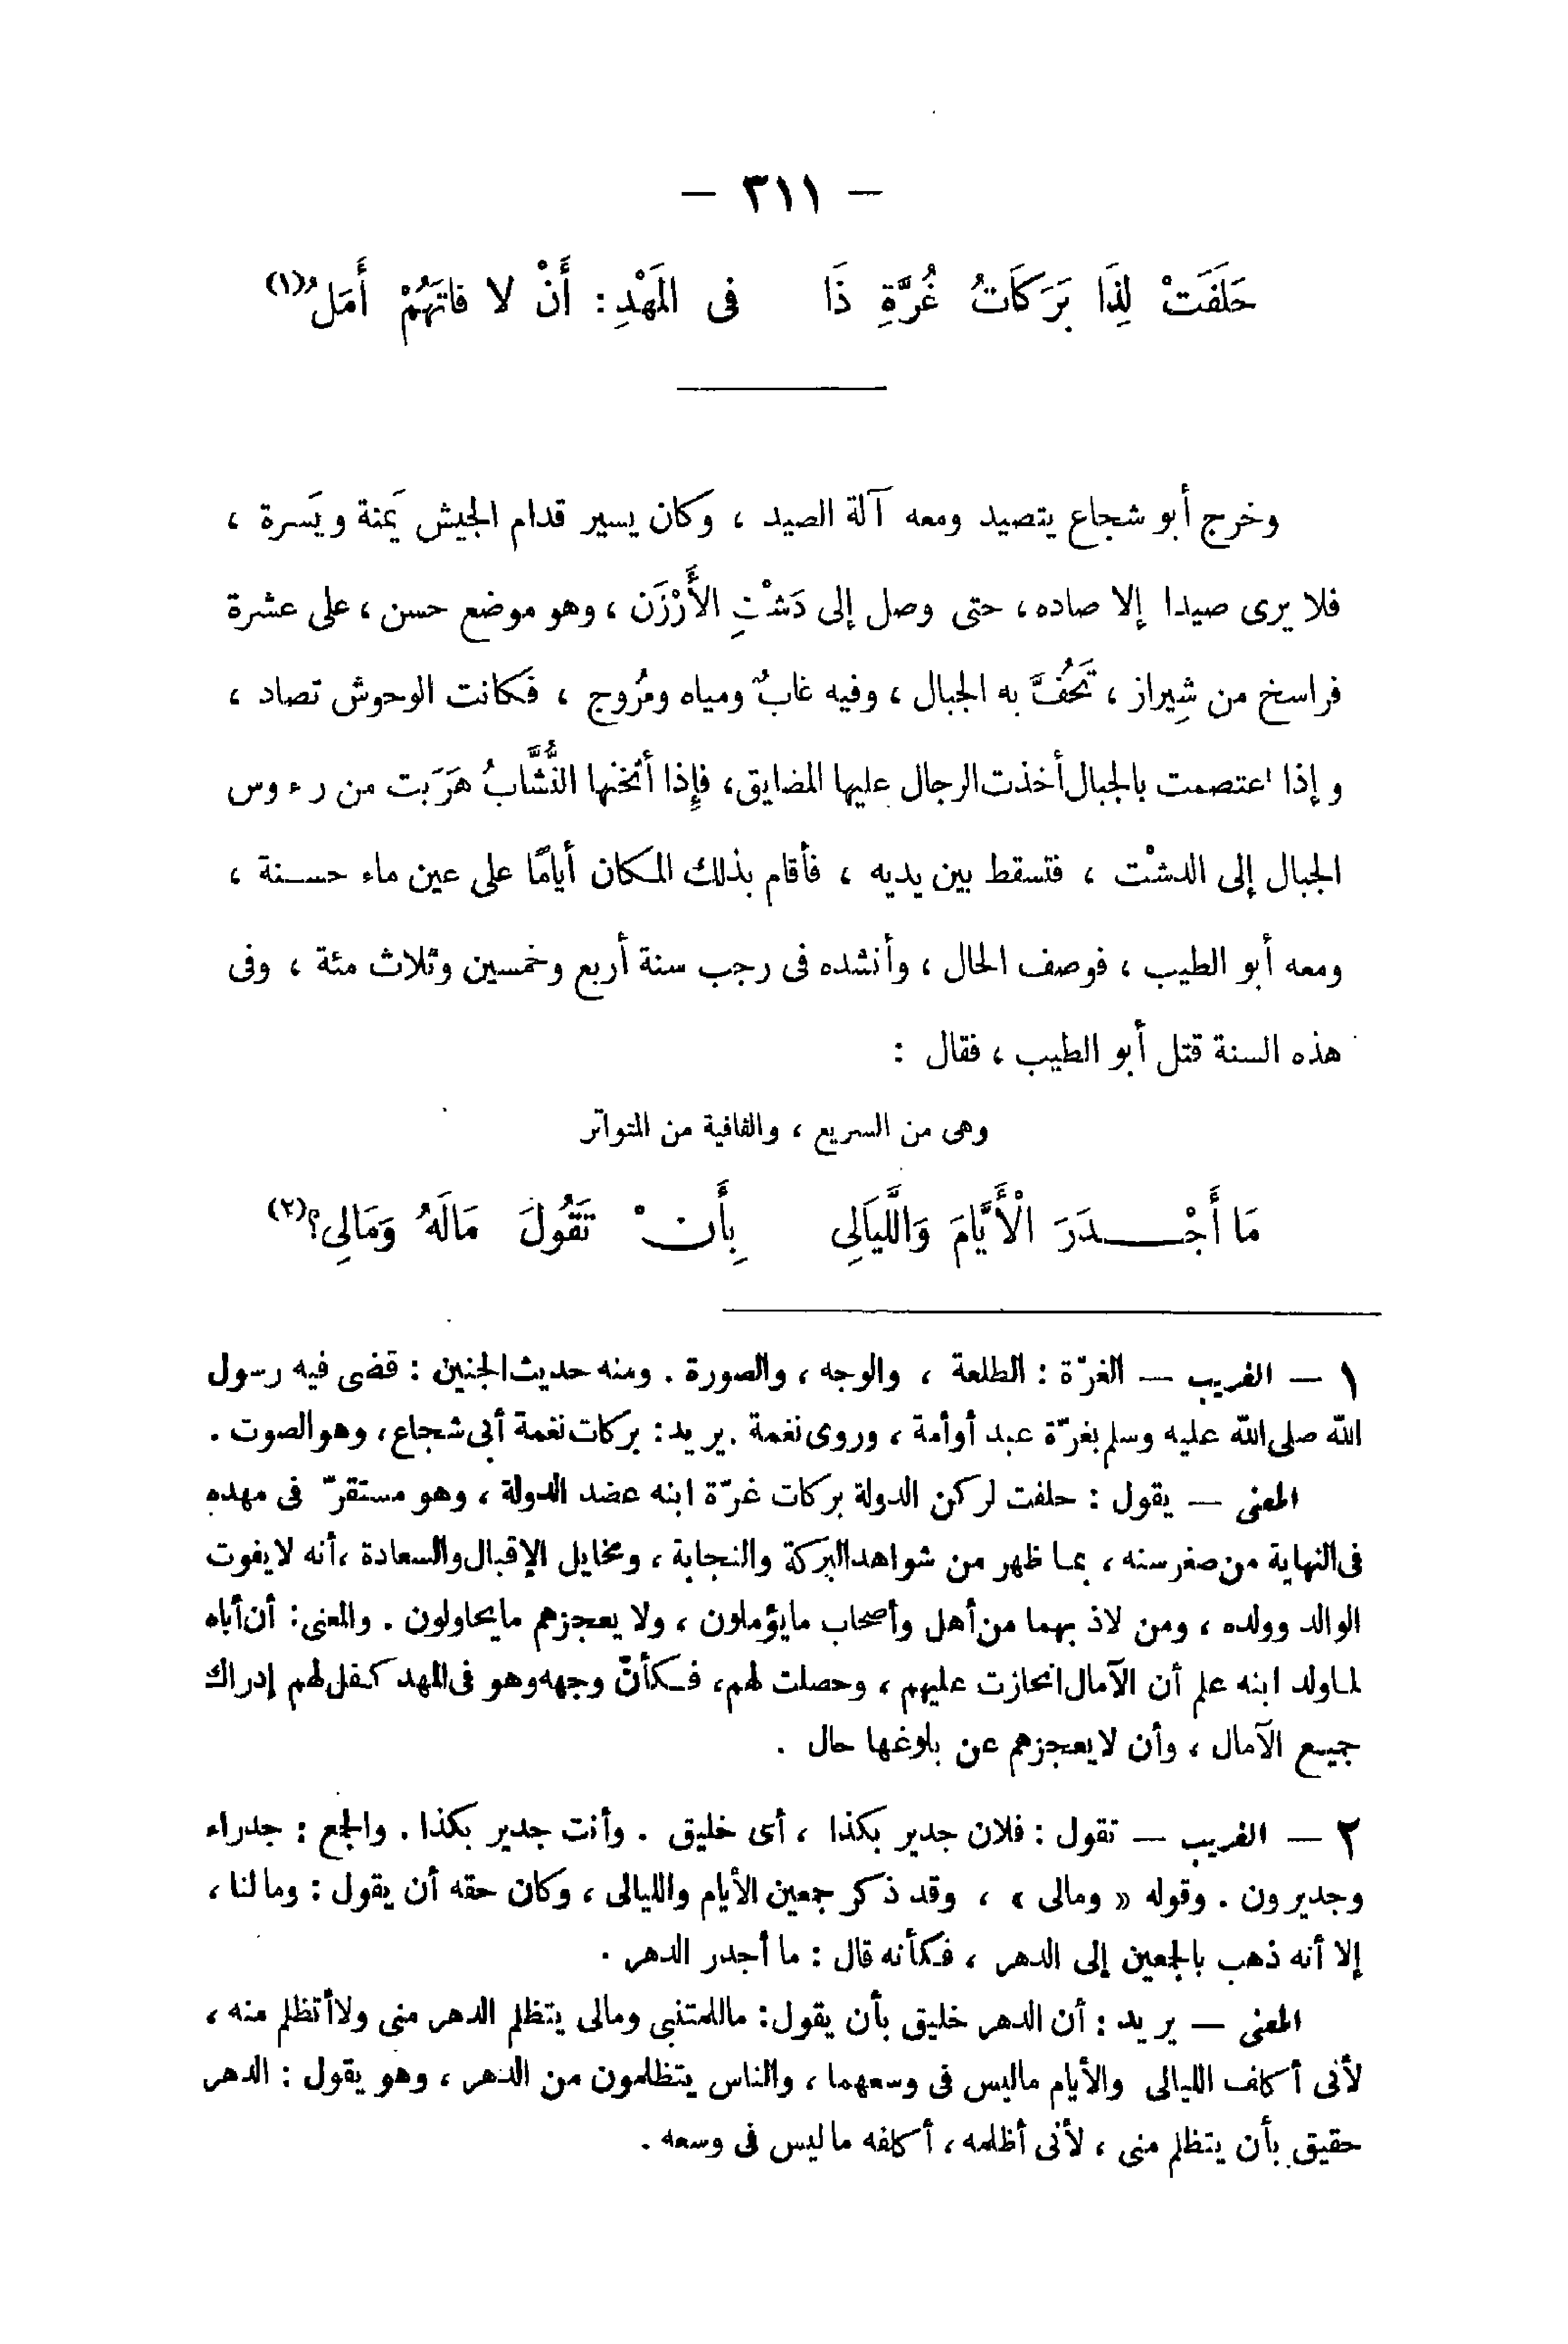 — ٣١١ —
حَلَفَتْ لِذَا بَرَكَاتُ غُرَّةِ ذَا فى المَهْدِ: أَنْ لا فاتَهُمْ أَمَلُ(١)
وخرج أبو شجاع يتصيد ومعه آلة الصيد ، وكان يسير قدام الجيش يَمنة ويَسرة ،
فلا يرى صيدا إلا صاده، حتى وصل إلى دَشْتِ الأَرْزَن ، وهو موضع حسن ، على عشرة
فراسخ من شِيراز ، تَحُفَّ به الجبال ، وفيه غابٌ ومياه ومُروج ، فكانت الوحوش تصاد ،
و إذا اعتصمت بالجبال أخذت الرجال عليها المضايق، فإِذا أثخنها النُّشَّابُ هَرَبت من رءوس
الجبال إلى الدشْت ، فتسقط بين يديه ، فأقام بذلك المكان أيامًا على عين ماء حسنة ،
ومعه أبو الطيب ، فوصف الحال ، وأنشده فى رجب سنة أربع وخمسين وثلاث مئة ، وفى
هذه السنة قتل أبو الطيب ، فقال :
وهى من السريع ، والقافية من المتواتر
مَا أَجْدَرَ الْأَيَّامَ وَاللَّيَالِى بِأَنْ تَقُولَ مَالَهُ وَمَالِى؟(٢)
١ — الغريب — الغرّة : الطلعة ، والوجه ، والصورة . ومنه حديث الجنين : قضى فيه رسول
الله صلى الله عليه وسلم بغرّة عبد أو أمة ، وروى نغمة . يريد: بركات نغمة أبى شجاع، وهو الصوت .
المعنى — يقول : حلفت لركن الدولة بركات غرّة ابنه عضد الدولة ، وهو مستقرّ فى مهده
فى النهاية من صغر سنه ، بما ظهر من شواهد البركة والنجابة ، ومخايل الإقبال والسعادة ، أنه لا يفوت
الوالد وولده ، ومن لاذ بهما من أهل وأصحاب مايؤملون ، ولا يعجزهم ما يحاولون . والمعنى: أن أباه
لما ولد ابنه علم أن الآمال انحازت عليهم ، وحصلت لهم، فكأنّ وجهه وهو فى المهد كفل لهم إدراك
جميع الآمال ، وأن لا يعجزهم عن بلوغها حال .
٢ — الغريب — تقول : فلان جدير بكذا ، أى خليق . وأنت جدير بكذا . والجمع : جدراء
وجديرون . وقوله « ومالى » ، وقد ذكر جمعين الأيام والليالى ، وكان حقه أن يقول : وما لنا ،
إلا أنه ذهب بالجمعين إلى الدهر ، فكأنه قال : ما أجدر الدهر .
المعنى — يريد : أن الدهر خليق بأن يقول: ماللمتنبى ومالى يتظلم الدهر منى ولا أتظلم منه ،
لأنى أكلف الليالى والأيام ماليس فى وسعهما ، والناس يتظلمون من الدهر ، وهو يقول : الدهر
حقيق بأن يتظلم منى ، لأنى أظلمه ، أكلفه ما ليس فى وسعه .